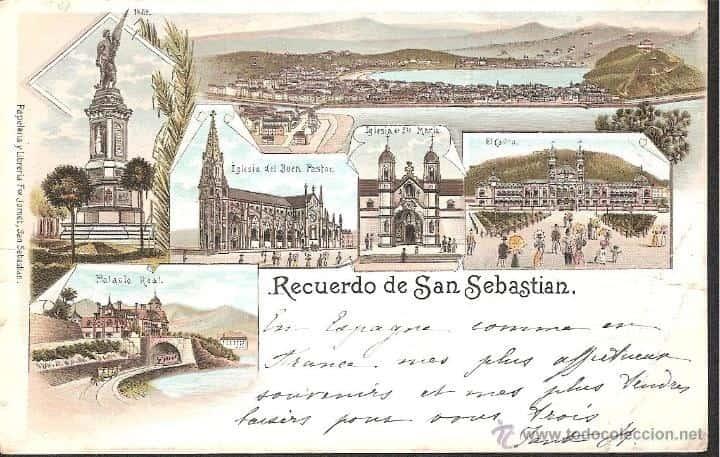 Iglesia de Sta Maria
El Casino.
Iglesia del Buen Pastor.
Papeleria y Libreria Fco Jornet, San Sebastian.
Palacio Real.
Recuerdo de San Sebastian.
En Espagne comme en
France, mes plus affectueux
souvenirs et mes plus tendres
baisers pour vous trois
www.todocoleccion.net